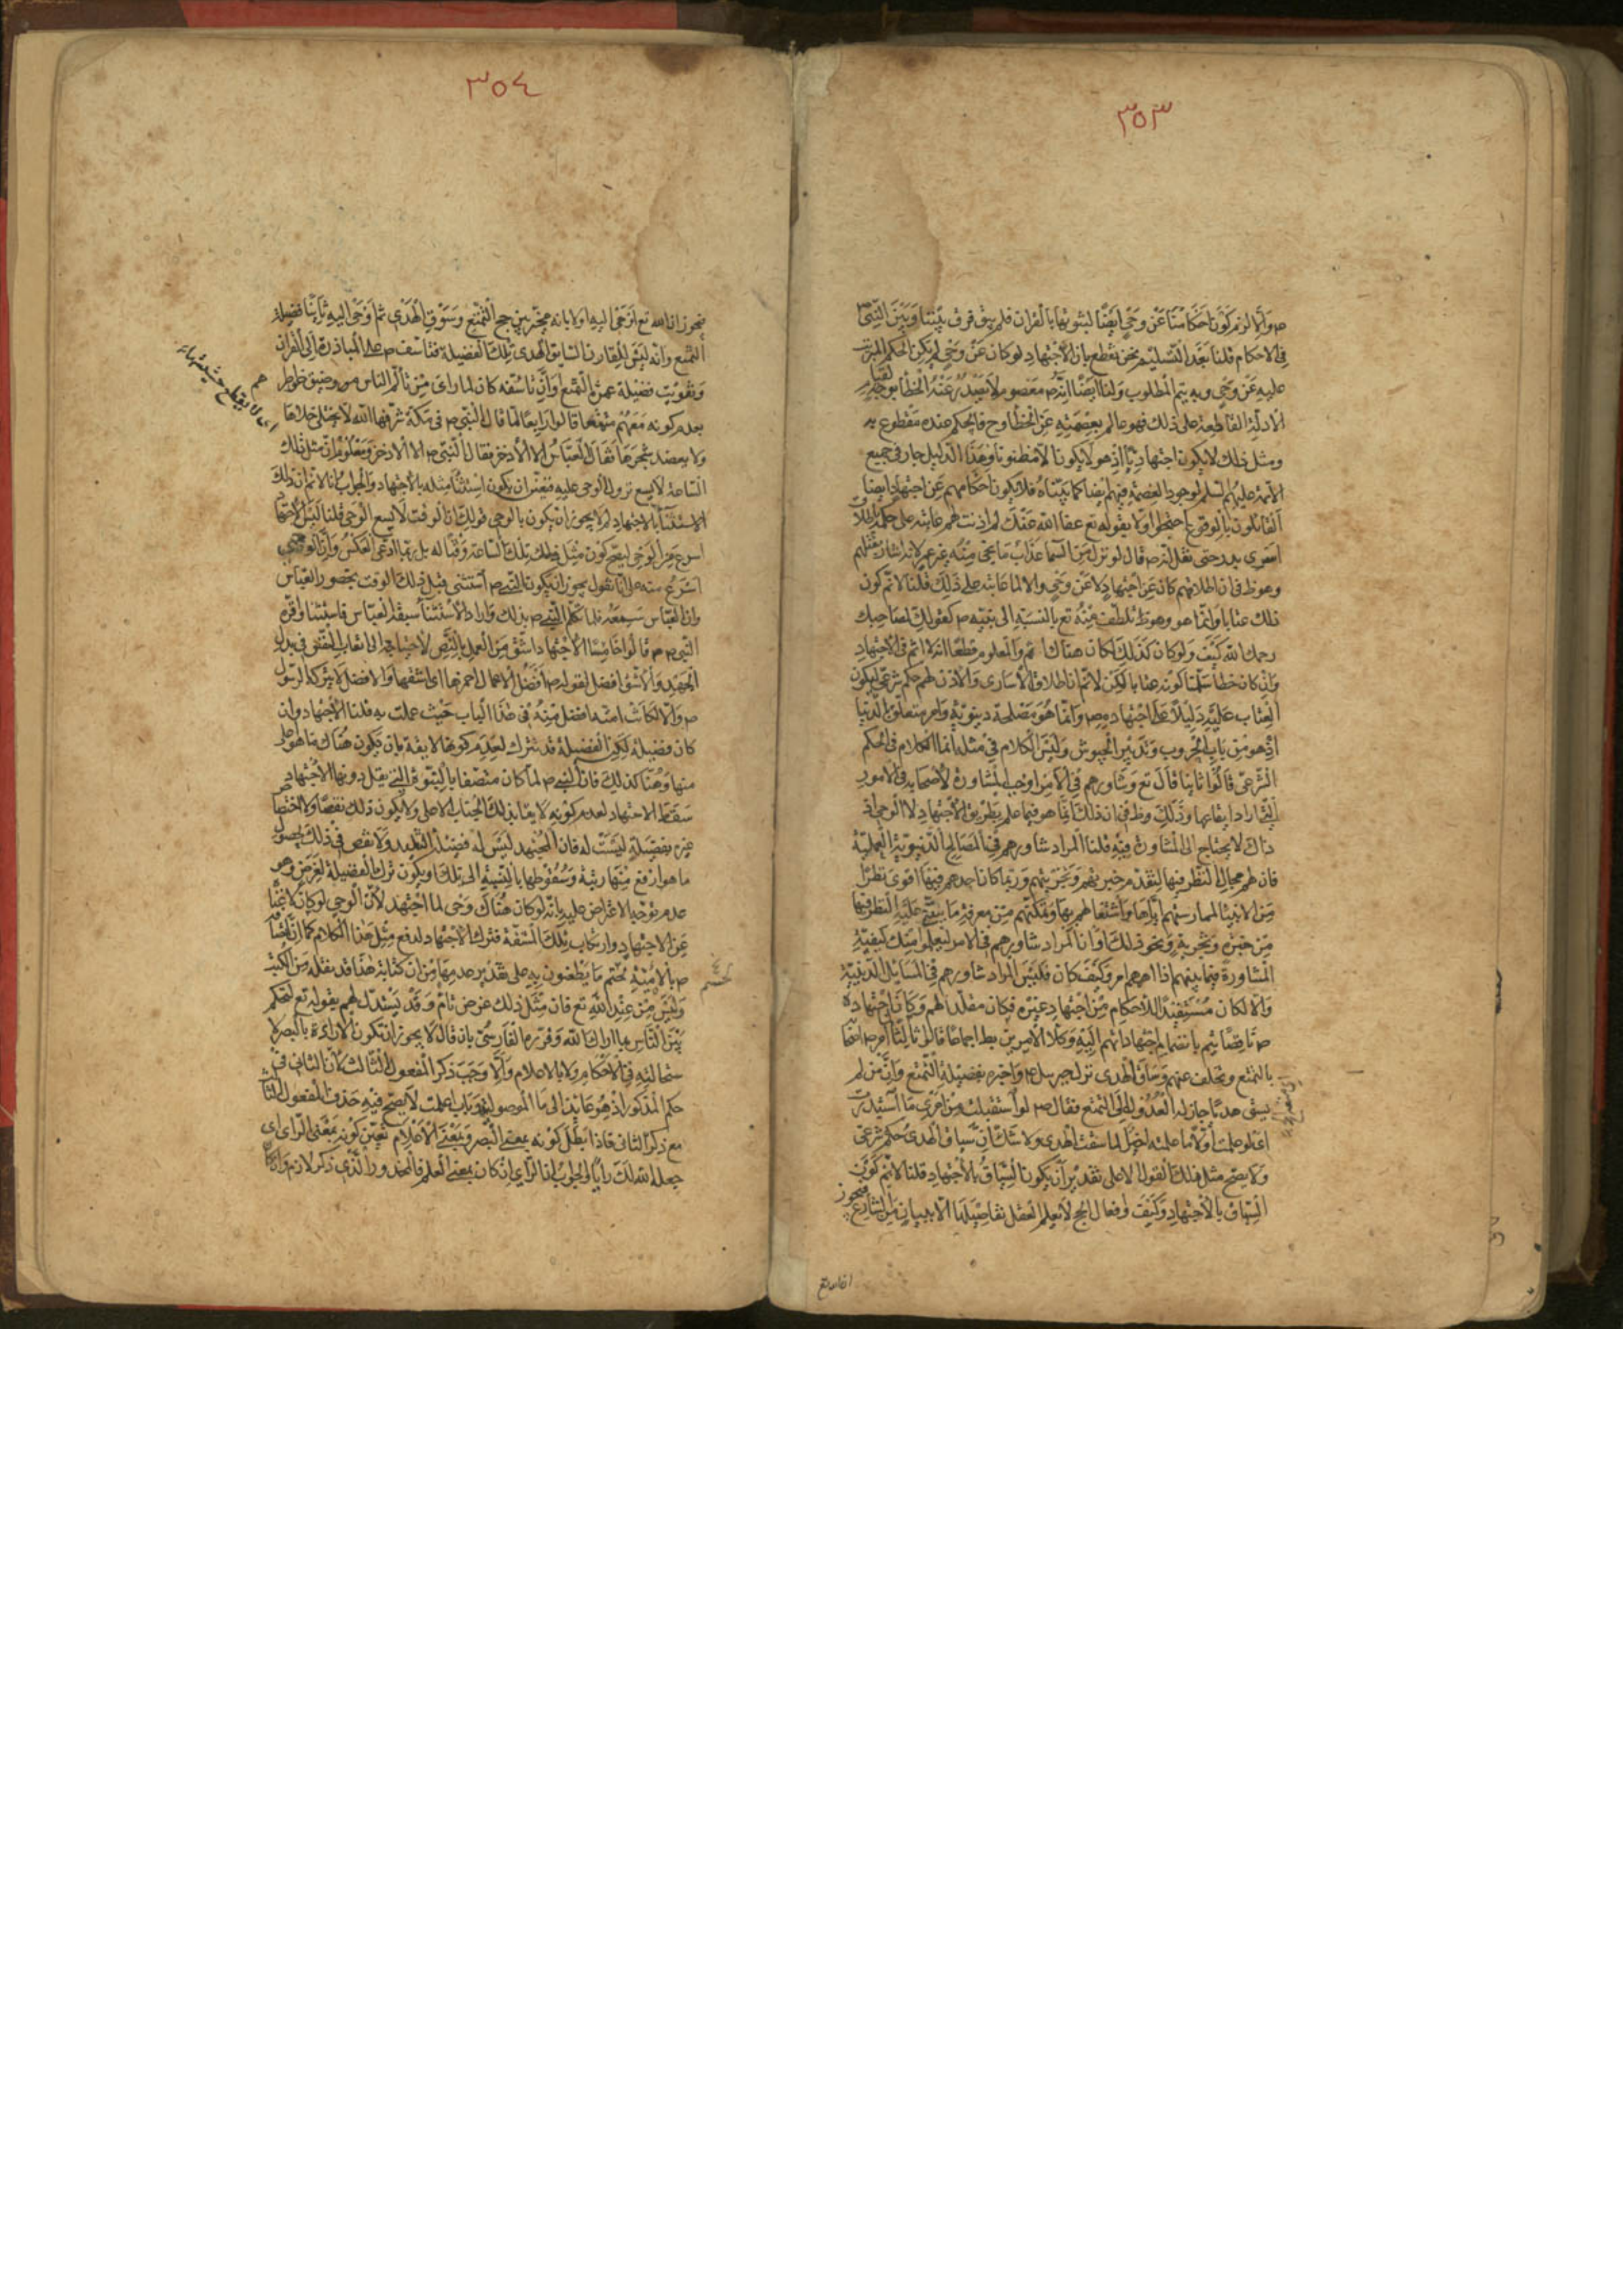 ٣٥٣
ص والا لزم كون احكامنا عن وحي ايضا لثبوتها بالقران فلم يبق فرق بيننا وبين النبي ص
في الاحكام قلنا بعد التسليم نحن نقطع بان الاجتهاد لو كان عن وحي لم يكن الحكم المترتب
عليه عن وحي وبه يتم المطلوب ولنا ايضا انه ص معصوم لا يصدر عنه الخطا
الادلة القاطعة على ذلك فهو عالم بعصمته عن الخطا وح فالحكم عنده مقطوع به
ومثل ذلك لا يكون اجتهاديا اذ هو لا يكون الا مظنونا وهذا الدليل جار في جميع
الائمة عليهم السلم لوجود العصمة فيهم ايضا كما بيناه فلا يكون احكامهم عن اجتهاد ايضا
القائلون بالوقوع احتجوا اولا بقوله تع عفا الله عنك لم اذنت لهم عاتبه على حكمه
اسرى بدر حتى نقل انه ص قال لو نزل من السما عذاب ما نجى منه غير عمر لانه اشار بقتلهم
وهو ظ في ان اطلاقهم كان عن اجتهاد لا عن وحي والا لما عاتبه على ذلك قلنا لا نم كون
ذلك عتابا وانما هو وهو ظ تلطف منه تع بالنسبة الى نبيه ص كقولك لصاحبك
رحمك الله كيف ولو كان كذلك لكان هناك اثم والمعلوم قطعا انه لا اثم في الاجتهاد
وان كان خطا سلمنا كونه عتابا لكن لا نم ان اطلاق الاسارى والاذن لهم حكم شرعي ليكون
العتاب عليه دليلا على اجتهاده ص وانما هو مصلحة دنيوية وامر متعلق بالدنيا
اذ هو من باب الحروب وتدبير الجيوش وليس الكلام في مثله انما الكلام في الحكم
الشرعي قالوا ثانيا قال تع وشاورهم في الامر اوجب المشاورة لاصحابه في الامور
التي اراد ايقاعها وذلك وظ في ان ذلك انما هو فيما علم بطريق الاجتهاد لا الوحي اذ
ذاك لا يحتاج الى المشاورة فيه قلنا المراد شاورهم في المصالح الدنيوية العملية
فان لهم مجالا لنظر فيها لتقدم خبرتهم وتجربتهم وربما كان احدهم فيها اقوى نظرا
من الانبيا لممارستهم اياها واشتغالهم بها وتمكنهم من معرفة ما يبتني عليه النظر فيها
من خبرة وتجربة ونحو ذلك او ان المراد شاورهم في الامر ليتعلموا منك كيفية
المشاورة فيما بينهم اذا اهمهم امر وكيف كان فليس المراد شاورهم في المسائل الدينية
والا لكان مستفيدا للاحكام من اجتهاد غيره فكان مقلدا لهم وكان اجتهاده
ص ناقصا يتم بانضمام اجتهاداتهم اليه وكلا الامرين بط اجماعا قالوا ثالثا امر ص اصحابه
بالتمتع وتخلف عنهم وساق الهدى نزل جبرئيل ع واخبره بفضيلة التمتع وان من لم
يسق هديا جاز له العدول الى التمتع فقال ص لو استقبلت من امري ما استدبرت
اي لو علمت اولا ما علمته اخيرا لما سقت الهدى ولا شك ان سياق الهدى حكم شرعي
ولا يصح مثل ذلك القول الا على تقدير ان يكون السياق بالاجتهاد قلنا لا نم كون
السياق بالاجتهاد وكيف وافعال الحج لا يعلم العقل تفاصيلها الا ببيان من الشارع
فيجوز
٣٥٤
فيجوز ان الله تع اوحى اليه اولا بانه مخير بين حج التمتع وسوق الهدى ثم اوحى اليه ثانيا فضيلة
التمتع وانه ليتق للقارن السائق الهدى تلك الفضيلة فتاسف ص على المبادرة الى القران
وتفويت فضيلة عمرة التمتع او ان تاسفه كان لما راى من تالم الناس وضيق خواطرهم
بعدم كونه معهم متمتعا قالوا رابعا لما قال النبي ص في مكة شرفها الله لا يختلى خلاها
ولا يعضد شجرها فقال العباس الا الاذخر فقال النبي ص الا الاذخر ومعلوم ان مثل تلك
الساعة لا يسع نزول الوحي عليه فتعين ان يكون استثنا مثله بالاجتهاد والجواب انا لا نم ان ذلك
الاستثنا بالاجتهاد لم لا يجوز ان يكون بالوحي قولك ان الوقت لا يسع الوحي قلنا ليس الاجتهاد
اسرع من الوحي ليصح كون مثل تلك الساعة وقتا له بل ربما ادعى العكس وان الوحي
اسرع منه على انا نقول يجوز ان يكون النبي ص استثنى قبل ذلك الوقت بحضور العباس
وان العباس سمعه فلما تكلم النبي ص بذلك واراد الاستثنا سبقه العباس فاستثنا واقره
النبي ص قالوا خامسا الاجتهاد اشق من العمل بالنص لاحتياجه الى اتعاب النفس في بذل
الجهد والاشق افضل لقوله ص افضل الاعمال احمزها اي اشقها والافضل لا يتركه الرسول
ص والا لكانت امته افضل منه في هذا الباب حيث عملت به قلنا الاجتهاد وان
كان فضيلة لكن الفضيلة قد تترك لعدم كونها لايقة بان يكون هناك ما هو اعلى
منها وهنا كذلك فان النبي ص لما كان متصفا بالنبوة التي يقل دونها الاجتهاد
سقط الاجتهاد لعدم كونه لايقا بذلك الجناب الاعلى ولا يكون ذلك نقصا ولا اختصاص
غيره بفضيلة ليست له فان المجتهد ليس له فضيلة التقليد ولا نقص في ذلك لحصول
ما هو ارفع منها رتبة وسقوطها بالنسبة الى تلك او يكون ترك الفضيلة لغرض وهو
عدم توجه الاعتراض عليه بانه لو كان هناك وحى لما اجتهد لان الوحي لو كان لاغنا
عن الاجتهاد وارتكاب تلك المشقة فترك الاجتهاد لدفع مثل هذا الكلام كما ان اتصافه
ص بالامية لحسم ما يطعنون به على تقدير عدمها من ان كتابة هذا قد نقله من الكتب
وليس من عند الله تع فان مثل ذلك غرض تام وقد يستدل لهم بقوله تع لتحكم
بين الناس بما اراك الله وقرره الفارسي بان قال لا يجوز ان تكون الاراءة بالبصر لا
ستحالته في الاحكام ولا بالاعلام والا وجب ذكر المفعول الثالث لان الثاني في
حكم المذكور اذ هو عايد الى ما الموصولة وباب اعلمت لا يصح فيه حذف المفعول الثالث
مع ذكر الثاني فاذا بطل كونه بمعنى البصر وبمعنى الاعلام تعين كونه بمعنى الراى اي
جعله الله لك رايا والجواب ان الراي ان كان بمعنى العلم فالمحذور الذي ذكر لازم وان كان
لحسم